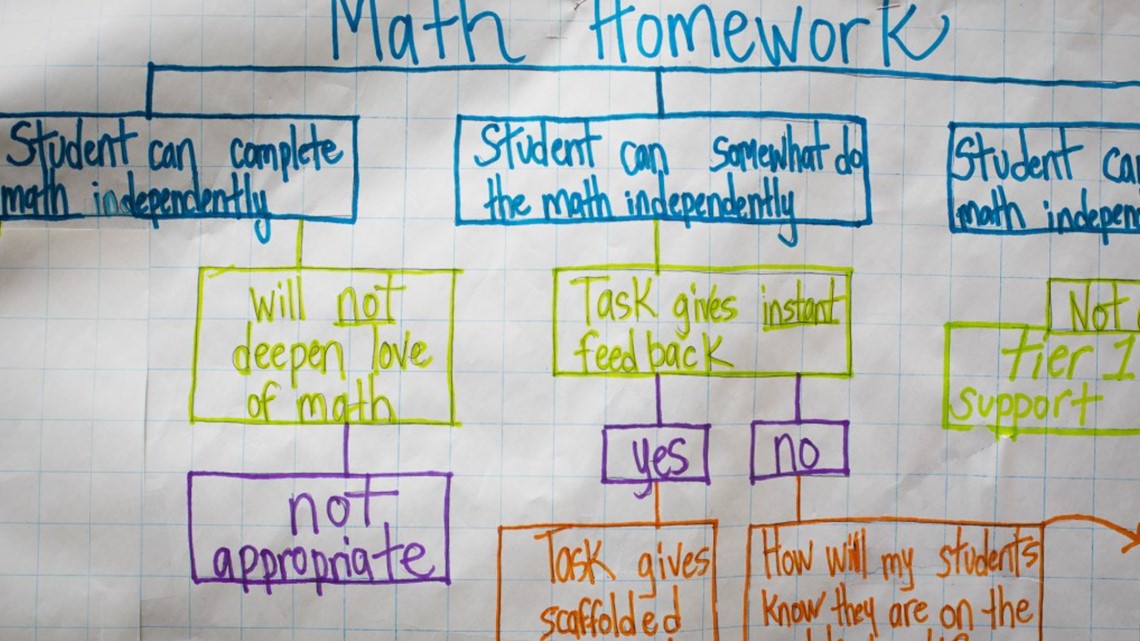 Math Homework
Student can complete
math independently
Student can somewhat do
the math independently
Student
math
will not
deepen love
of math
Task gives instant
feedback
Not
tier 1
support
yes
no
not
appropriate
Task gives
scaffolded
How will my students
know they are on the